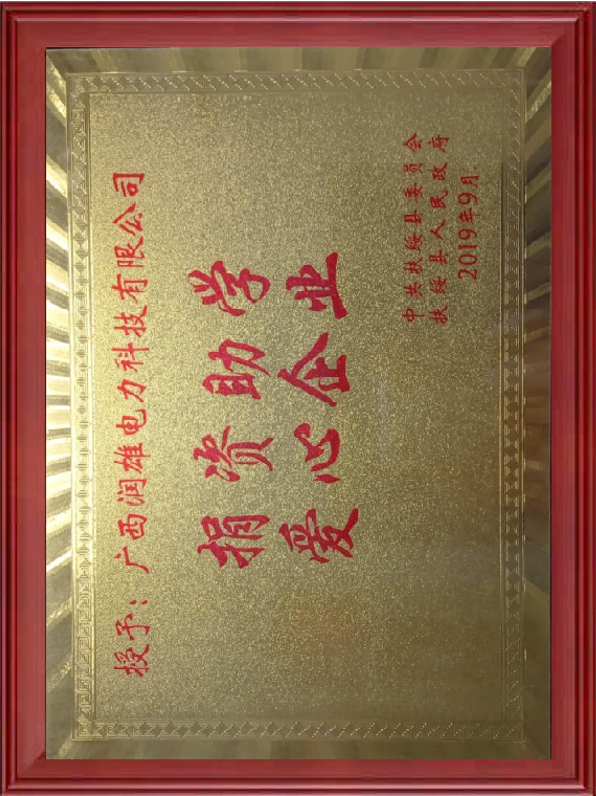 授予：广西润雄电力科技有限公司
捐资助学
爱心企业
中共扶绥县委员会
扶绥县人民政府
2019年9月